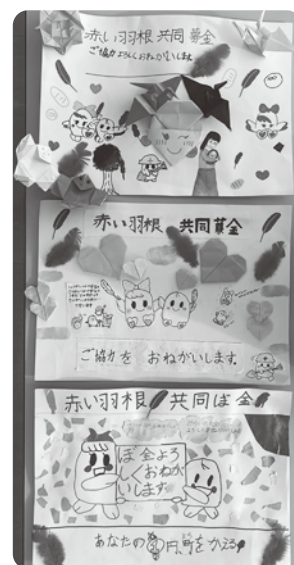 赤い羽根共同募金
ご協力よろしくおねがいします
赤い羽根 共同募金
ご協力を おねがいします。
赤い羽根 共同ぼ金
ぼ金よろ
しくおねが
いします
あなたの 円、町をかえる